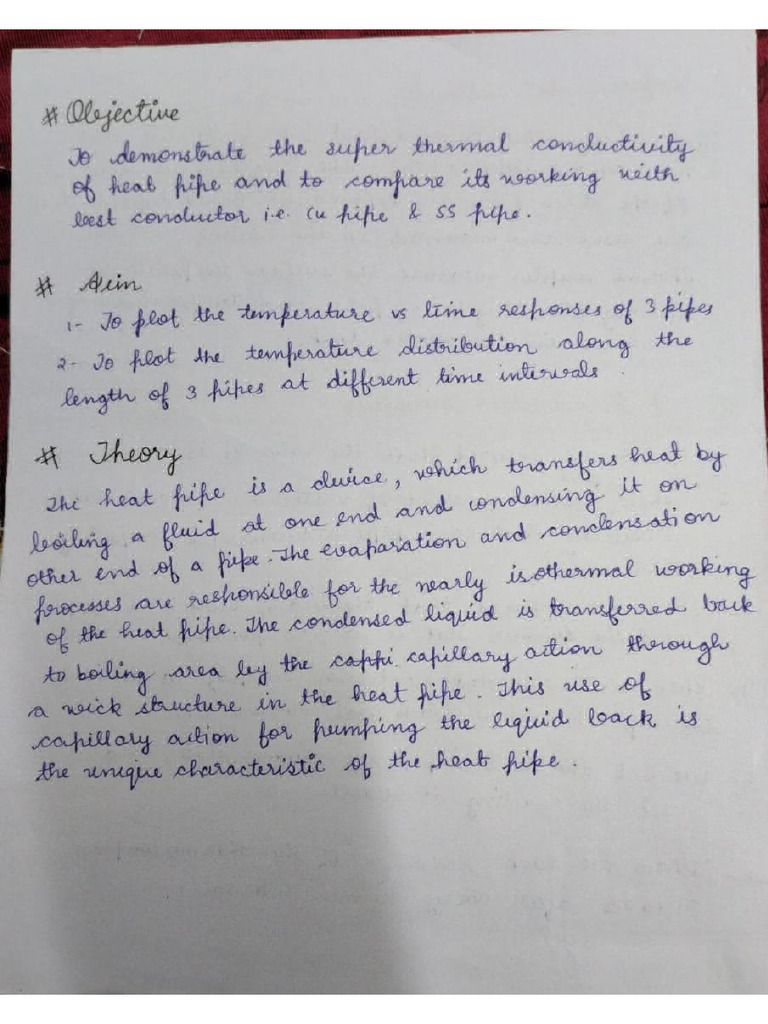 # Objective
To demonstrate the super thermal conductivity
of heat pipe and to compare its working with
best conductor i.e. Cu pipe & SS pipe.
# Aim
1- To plot the temperature vs time responses of 3 pipes
2- To plot the temperature distribution along the
length of 3 pipes at different time intervals.
# Theory
The heat pipe is a device, which transfers heat by
boiling a fluid at one end and condensing it on
other end of a pipe. The evaparation and condensation
processes are responsible for the nearly isothermal working
of the heat pipe. The condensed liquid is transferred back
to boiling area by the cappi capillary action through
a wick structure in the heat pipe. This use of
capillary action for pumping the liquid back is
the unique characteristic of the heat pipe.